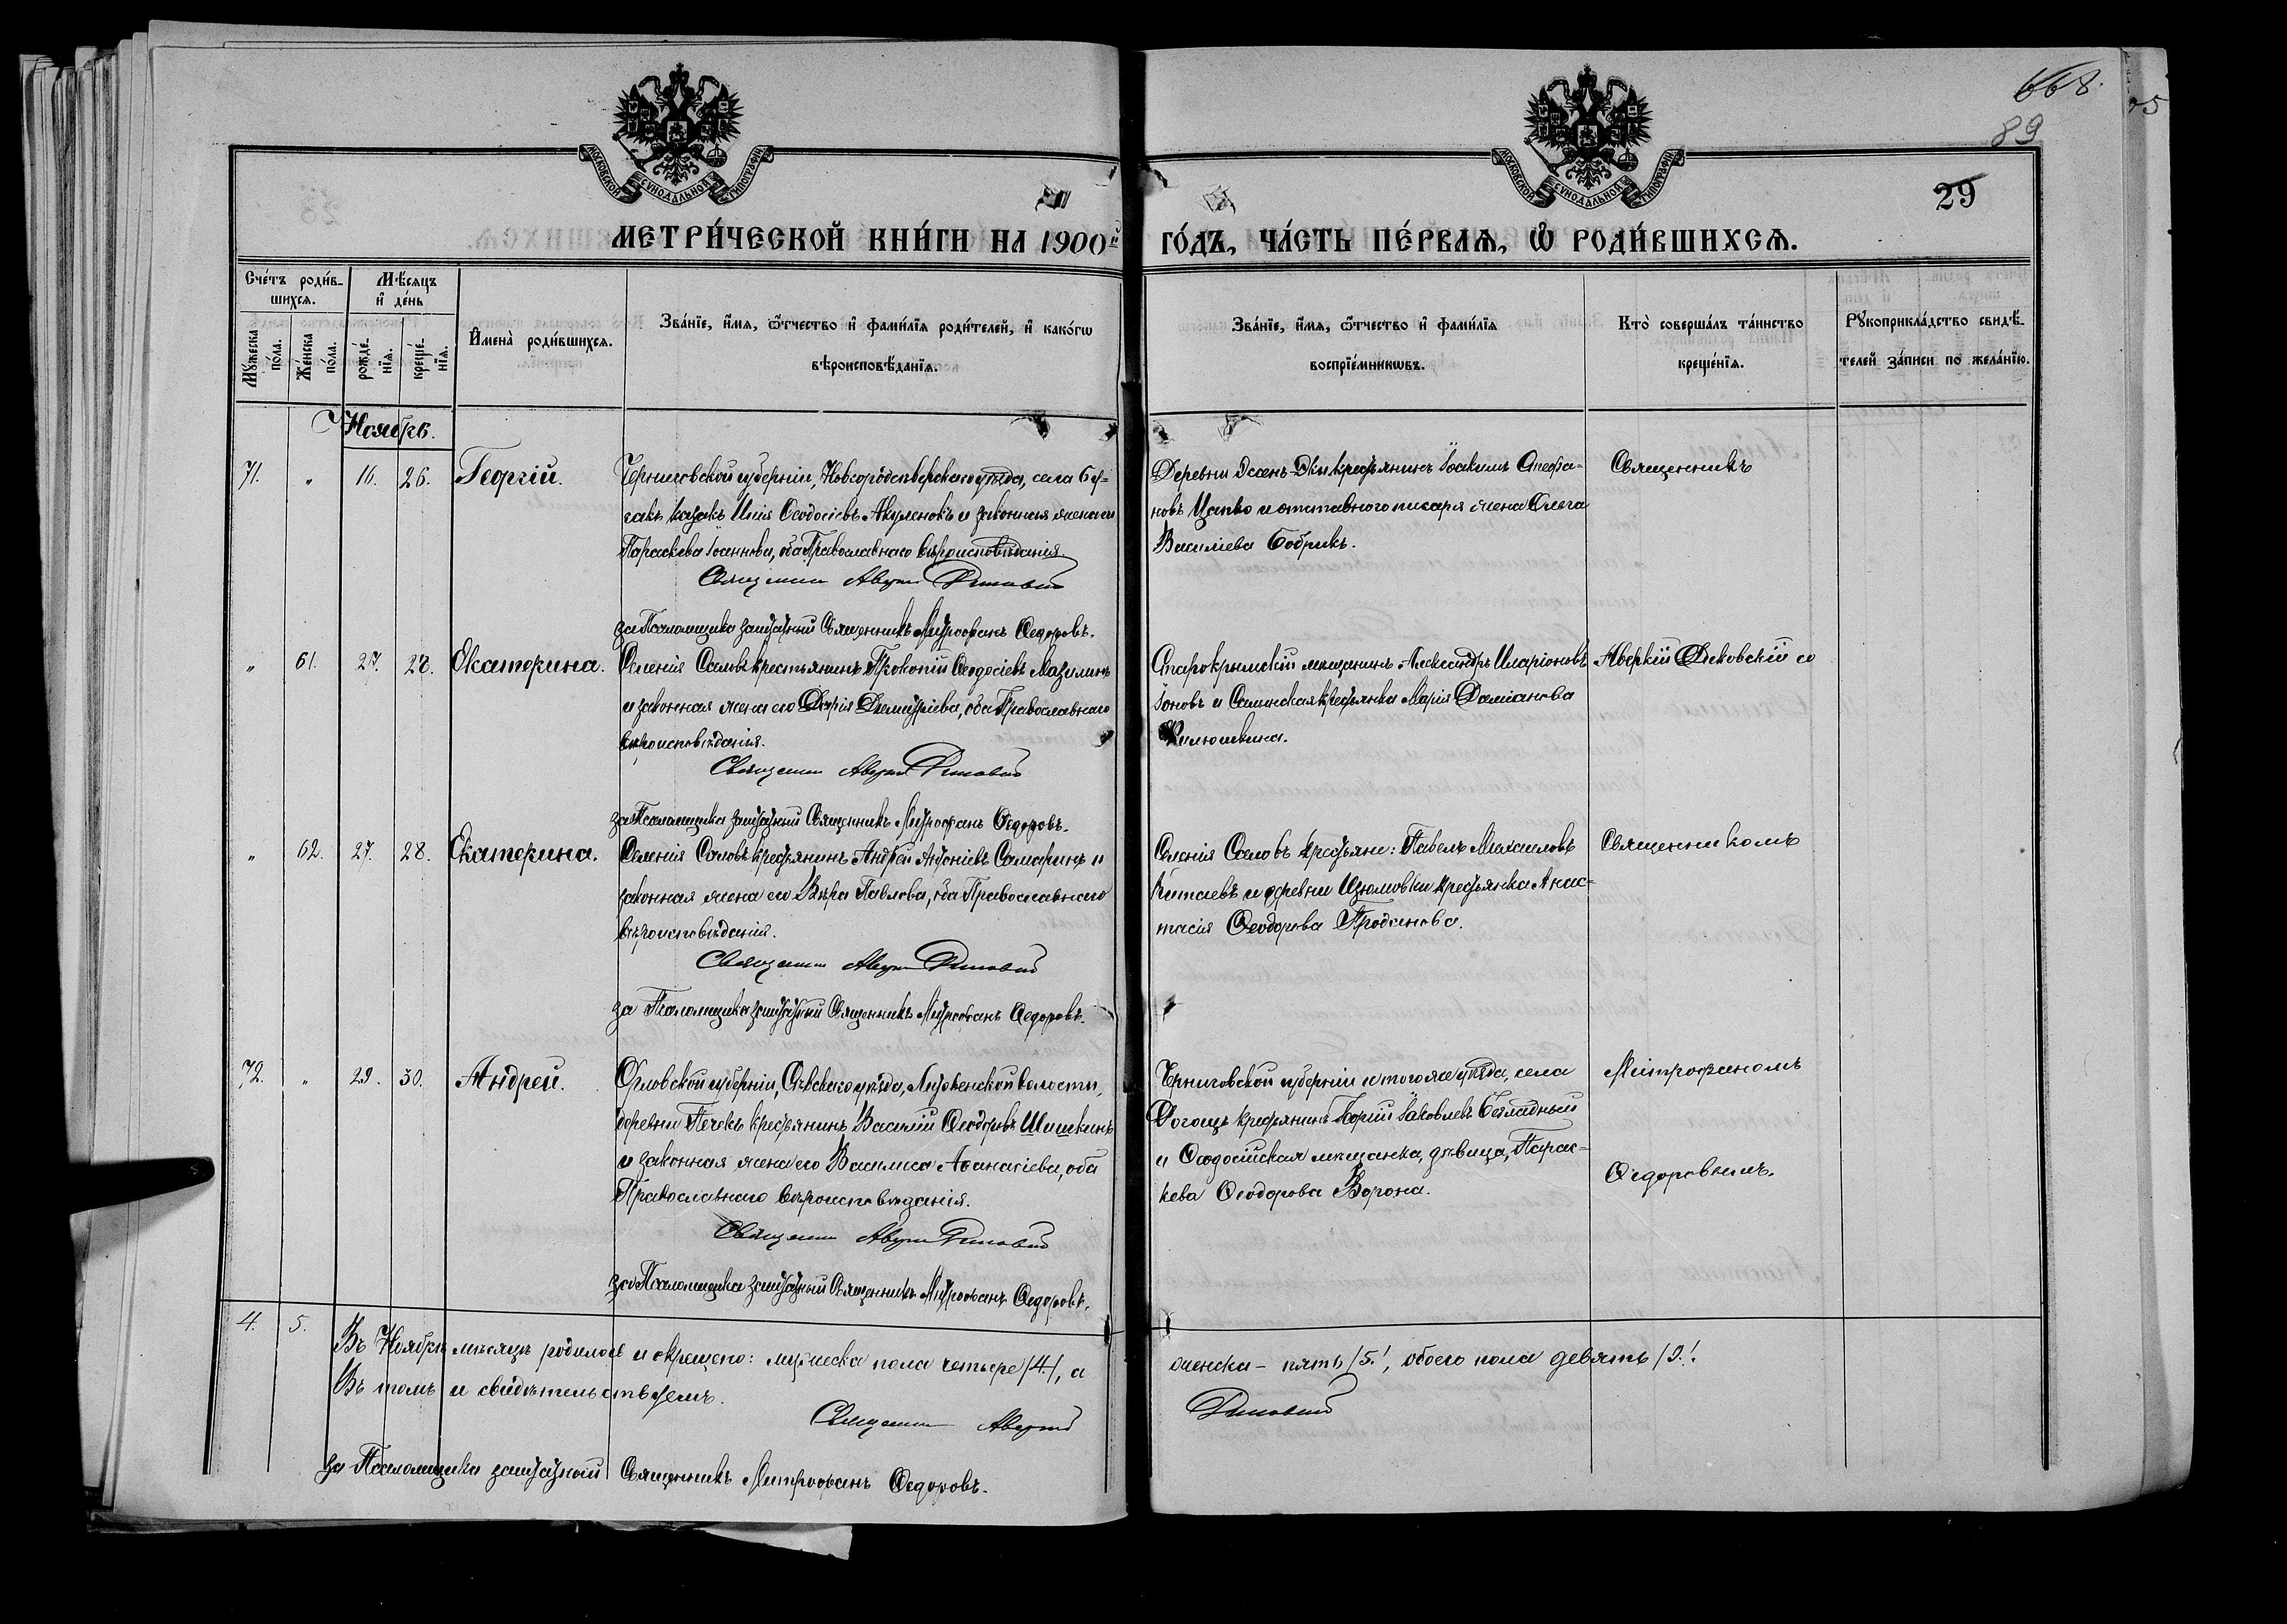 668.
89
29
МОСКОВСКОЙ СУНОДАЛЬНОЙ ТИПОГРАФІИ
МОСКОВСКОЙ СУНОДАЛЬНОЙ ТИПОГРАФІИ
МЕТРИ́ЧЕСКОЙ КНИ́ГИ НА 1900й ГО́ДЪ, ЧА́СТЬ ПЕ́РВАѦ, Ѽ РОДИ́ВШИХСѦ.
Сче́тъ роди́в-
шихсѧ.
Мѣ́сѧцъ
и де́нь
Мꙋ́жеска по́ла.
Же́нска по́ла.
рожде́-
нїѧ.
креще́-
нїѧ.
Имена̀ роди́вшихсѧ.
Зва́нїе, и́мѧ, ѻ҆́тчество и фами́лїѧ роди́телей, и како́гѡ
вѣроисповѣ́данїѧ.
Зва́нїе, и́мѧ, ѻ҆́тчество и фами́лїѧ
воспрїе́мникѡвъ.
Кто̀ соверша́лъ та́инство
креще́нїѧ.
Рꙋкоприкла́дство свидѣ́-
телей за́писи по жела́нїю.
Ноябрь.
71. " 16. 26. Георгій.
Черниговской губерніи, Новгородсѣверскаго уѣзда, села
казакъ Илія Ѳеодосіевъ Акуленокъ и законная жена его
Параскева Іоаннова, оба Православнаго вѣроисповѣданія
Священникъ Аверкій
за Псаломщика заштатный Священникъ Митрофанъ Ѳедоровъ.
крестьянинъ Іоакимъ Стефа-
новъ Цапко и отставного писаря жена Ольга
Василіева Бобрикъ.
Священникъ
" 61. 27. 28. Екатерина.
Селенія Саловъ крестьянинъ Прокопій Ѳеодосіевъ Мазилинъ
и законная жена его Дарія Димитріева, оба Православнаго
вѣроисповѣданія.
Священникъ Аверкій
за Псаломщика заштатный Священникъ Митрофанъ Ѳедоровъ.
Старокрымскій мещанинъ Александръ Иларіоновъ
Іоновъ и Салинская крестьянка Марія Даміанова
Аверкій со
" 62. 27. 28. Екатерина.
Селенія Саловъ крестьянинъ Андрей Антоніевъ Самаринъ и
законная жена его Вѣра Павлова, оба Православнаго
вѣроисповѣданія.
Священникъ Аверкій
за Псаломщика заштатный Священникъ Митрофанъ Ѳедоровъ.
Селенія Саловъ крестьяне: Павелъ Михаиловъ
Китаевъ и деревни Изюмовки крестьянка Анас-
тасія Ѳеодорова Проданова.
Священникомъ
72. " 29. 30. Андрей.
Орловской губерніи, Сѣвскаго уѣзда, волости,
деревни крестьянинъ Василій Ѳеодоровъ Шишкинъ
и законная жена его Василиса Аѳанасіева, оба
Православнаго вѣроисповѣданія.
Священникъ Аверкій
за Псаломщика заштатный Священникъ Митрофанъ Ѳедоровъ.
Черниговской губерніи и того же уѣзда, села
крестьянинъ Іаковлевъ
и Ѳеодосійская мещанка, дѣвица, Парас-
кева Ѳеодорова Ворона.
Митрофаномъ
Ѳедоровымъ.
4. 5. Въ Ноябрѣ мѣсяцѣ родилось и окрещено: мужеска пола четыре /4/, а женска – пять /5/, обоего пола девять /9/.
Въ томъ и свидѣтельствуемъ.
Священникъ Аверкій
за Псаломщика заштатный Священникъ Митрофанъ Ѳедоровъ.